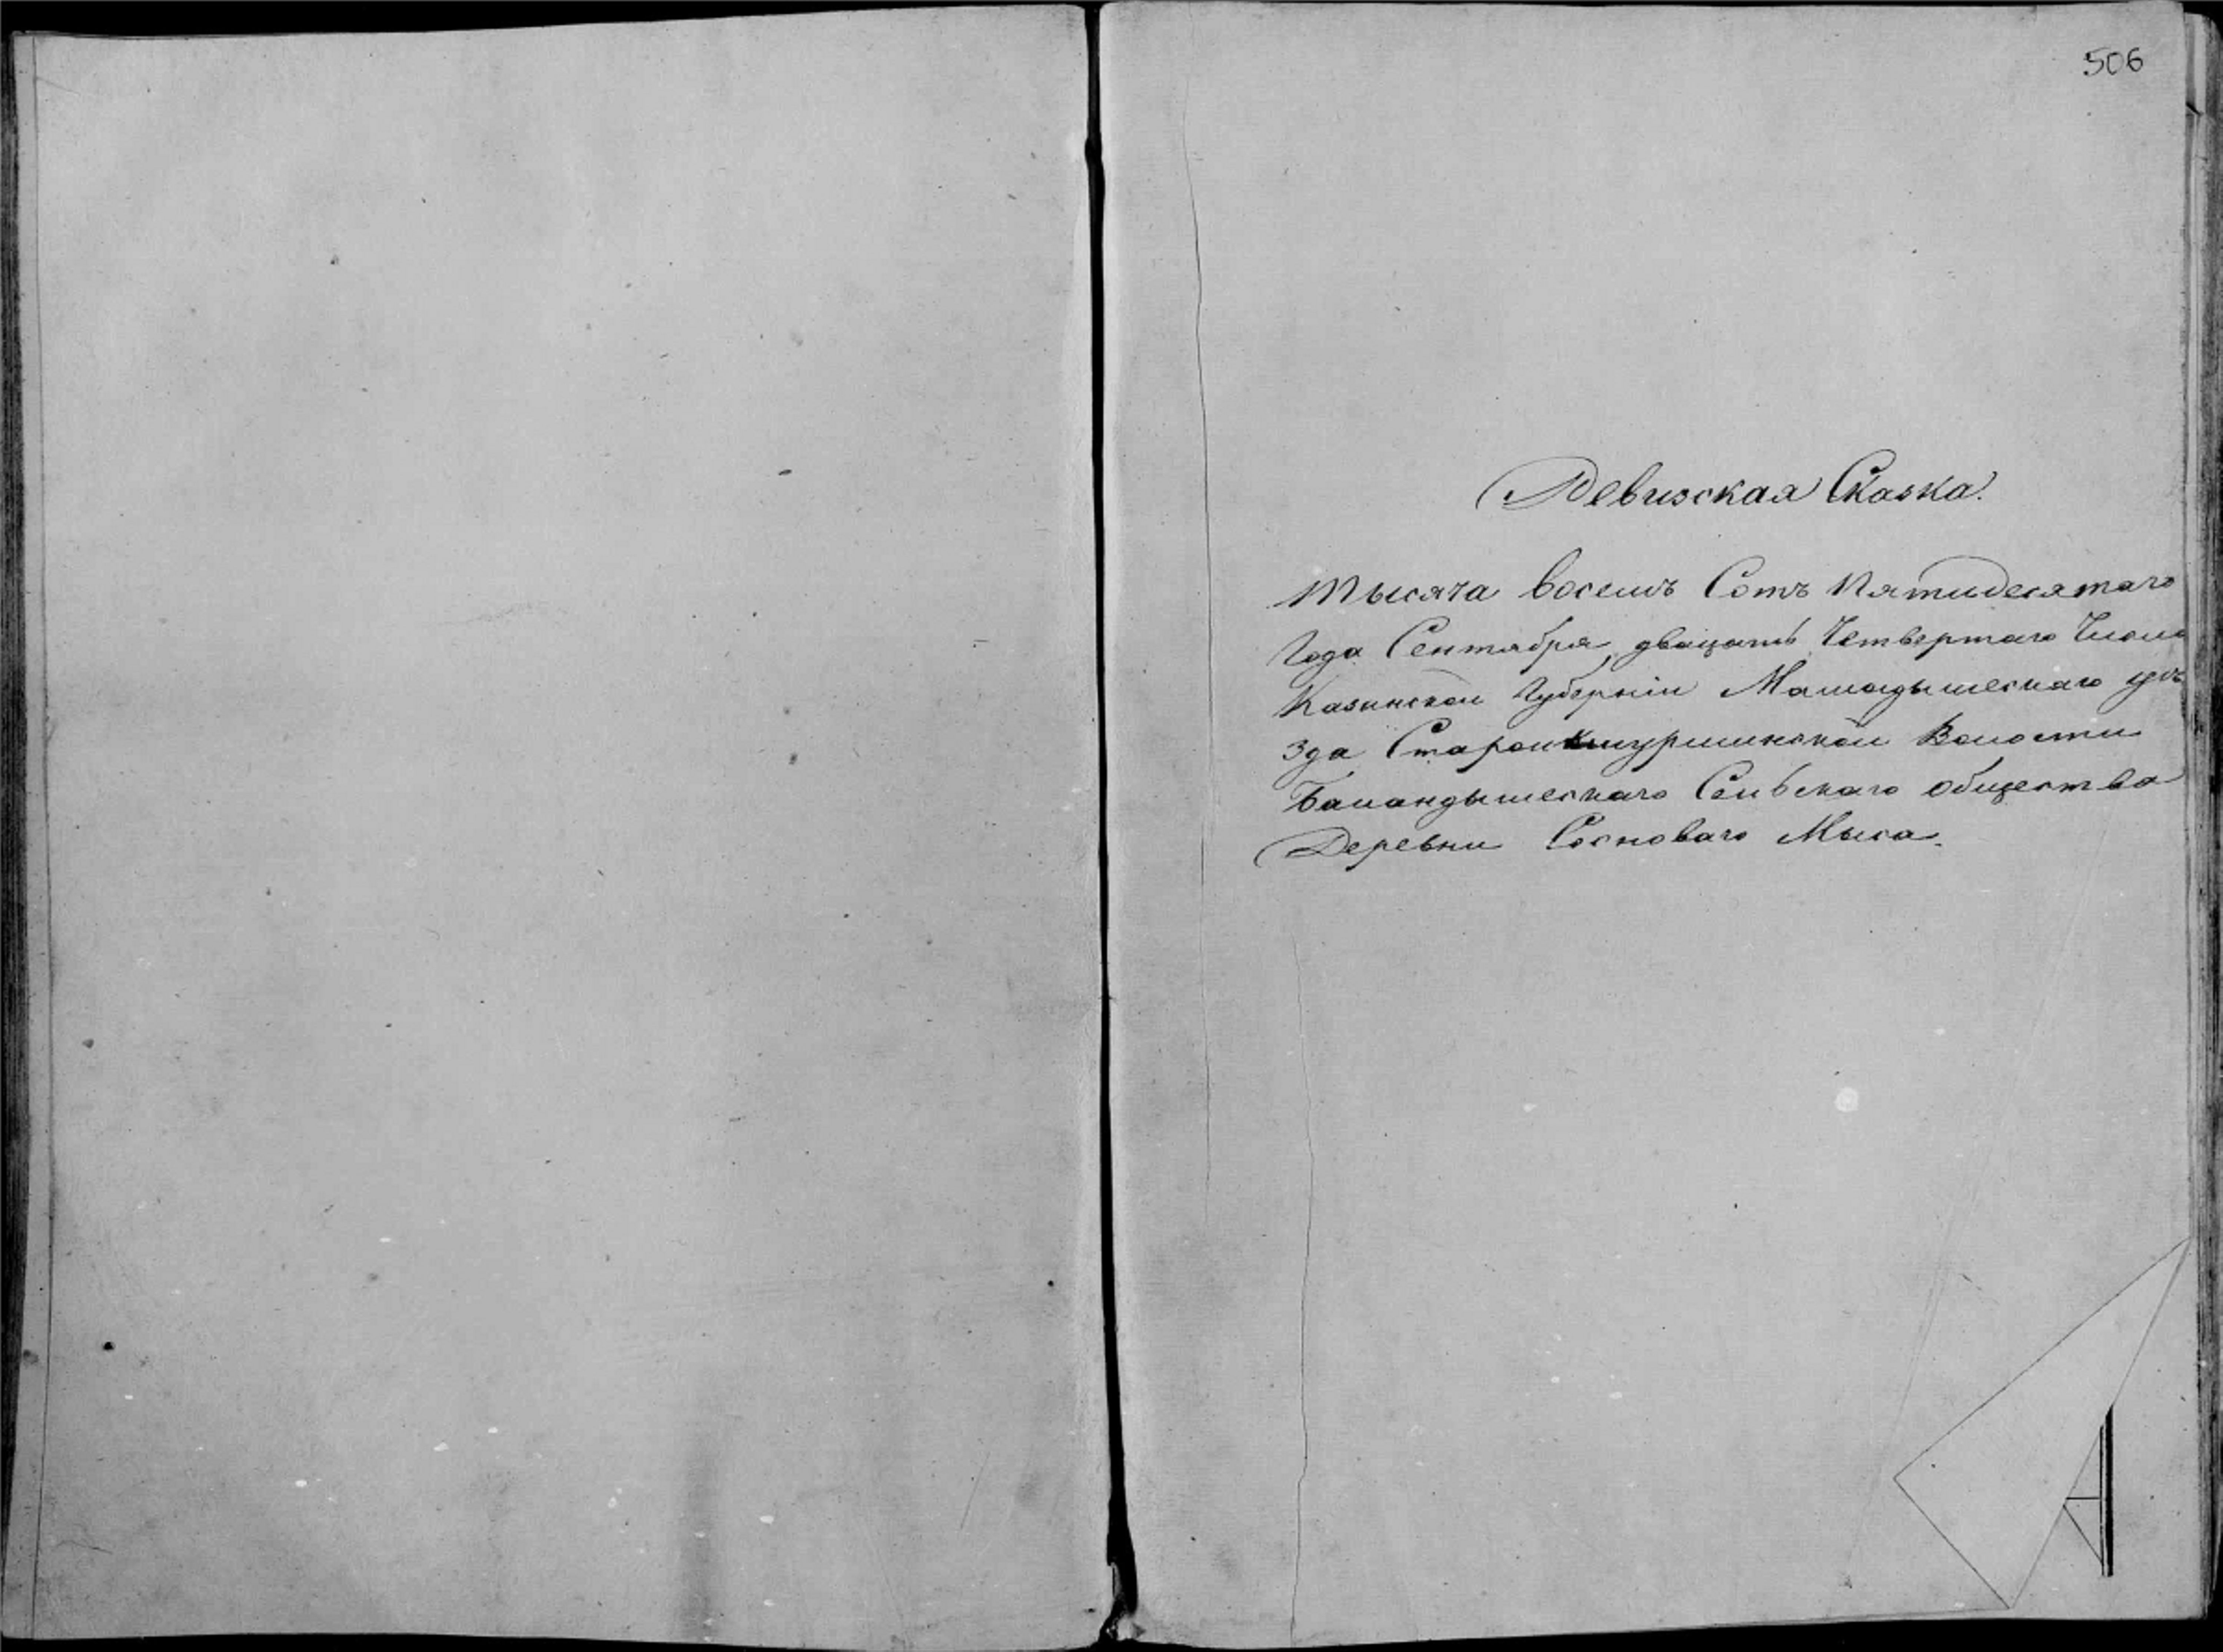 506
Ревизская Сказка.
Тысяча восемь Сотъ Пятидесятаго
Года Сентября двацать Четвертаго Числа
Казанской Губерніи Мамадышескаго уѣ
зда Старой Кшуршинской Волости
Баландышескаго Сельскаго общества
Деревни Сосноваго Мыса.